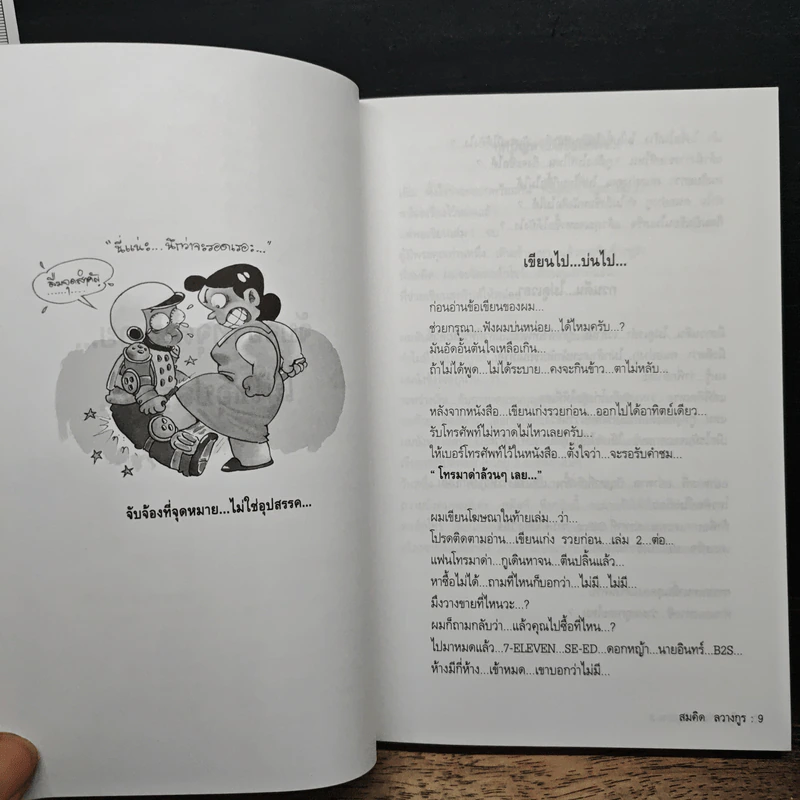 "นี่แน่ะ...นึกว่าจะรอดเรอะ..."
จับจ้องที่จุดหมาย...ไม่ใช่อุปสรรค...
เขียนไป...บ่นไป...
ก่อนอ่านข้อเขียนของผม...
ช่วยกรุณา...ฟังผมบ่นหน่อย...ได้ไหมครับ...?
มันอัดอั้นตันใจเหลือเกิน...
ถ้าไม่ได้พูด...ไม่ได้ระบาย...คงจะกินข้าว...ตาไม่หลับ...
หลังจากหนังสือ...เขียนเก่งรวยก่อน...ออกไปได้อาทิตย์เดียว...
รับโทรศัพท์ไม่หวาดไม่ไหวเลยครับ...
ให้เบอร์โทรศัพท์ไว้ในหนังสือ...ตั้งใจว่า...จะรอรับคำชม...
" โทรมาด่าล้วนๆ เลย..."
ผมเขียนโฆษณาในท้ายเล่ม...ว่า...
โปรดติดตามอ่าน...เขียนเก่ง รวยก่อน...เล่ม 2...ต่อ...
แฟนโทรมาด่า...กูเดินหาจน...ตีนปลิ้นแล้ว...
หาซื้อไม่ได้...ถามที่ไหนก็บอกว่า...ไม่มี...ไม่มี...
มึงวางขายที่ไหนวะ...?
ผมก็ถามกลับว่า...แล้วคุณไปซื้อที่ไหน...?
ไปมาหมดแล้ว...7-ELEVEN...SE-ED...ดอกหญ้า...นายอินทร์...B2S...
ห้างมีกี่ห้าง...เข้าหมด...เขาบอกว่าไม่มี...
สมคิด ลวางกูร : 9